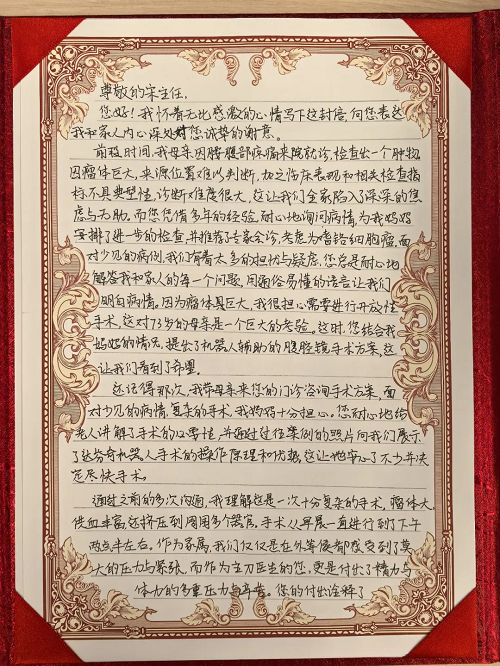 尊敬的宋主任,
您好！我怀着无比感激的心情写下这封信,向您表达
我和家人内心深处对您诚挚的谢意。
前段时间,我母亲因腰腹部疼痛来院就诊,检查出一个肿物
因瘤体巨大,来源位置难以判断,加之临床表现和相关检查指
标不具典型性,诊断难度很大,这让我们全家陷入了深深的焦
虑与无助。而您凭借多年的经验,耐心地询问病情,为我妈妈
安排了进一步的检查,并推荐了专家会诊,考虑为嗜铬细胞瘤,面
对少见的病例,我们有着太多的担忧与疑虑,您总是耐心地
解答我和家人的每一个问题,用通俗易懂的语言让我们
明白病情,因为瘤体巨大,我很担心需要进行开放性
手术,这对73岁的母亲是一个巨大的考验。这时,您结合我
妈妈的情况,提出了机器人辅助的腹腔镜手术方案,这
让我们看到了希望。
还记得那次,我带母亲来您的门诊咨询手术方案,面
对少见的病情,复杂的手术,我妈妈十分担心。您耐心地给
老人讲解了手术的必要性,并通过过往案例的照片向我们展示
了达芬奇机器人手术的操作原理和优势,这让她安心了不少并决
定尽快手术。
通过之前的多次沟通,我理解这是一次十分复杂的手术,瘤体大,
供血丰富,还挤压到周围多个器官,手术从早晨一直进行到了下午
两点半左右。作为家属,我们仅仅是在外等候都感受到了莫
大的压力与紧张,而作为主刀医生的您,更是付出了精力与
体力的多重压力与辛苦。您的付出诠释了